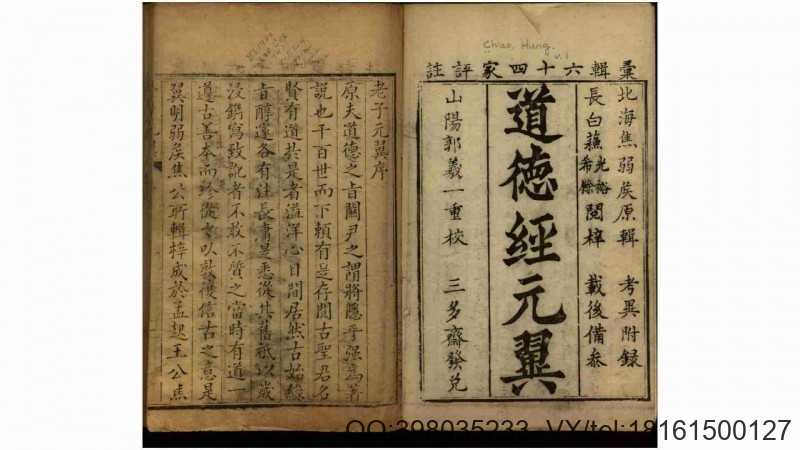 Chiao, Hung.
v.1
彙輯六十四家評註
北海焦弱矦原輯 考異附錄
長白蘓光裕希條閱梓 載後備叅
道德經元翼
山陽郭羲一重校 三多齋發兌
老子元翼序
原夫道德之旨關尹之謂將隱乎强為著
說也千百世而下頼有是存間古聖君名
賢有道共是者溢洋心目間居然古始
旨醇邃各有注長肅是悉從其舊祇以歲
浸鐫寫致訛者不敢不質之當時有道一
遵古善本而從以後信古之意是
翼明弱矦焦公所輯梓成於孟起王公焦
QQ:398035233 VX/tel:18161500127